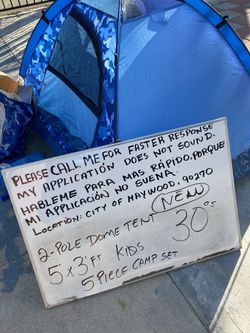 PLEASE CALL ME FOR FASTER RESPONSE
MY APPLICATION DOES NOT SOUND.
HABLEME PARA MAS RÁPIDO. PORQUE
MI APPLICACIÓN NO SUENA.
LOCATION: CITY OF MAYWOOD, 90270
NEW
2-POLE DOME TENT 30
5 x 3' FT KIDS
5 PIECE CAMP SET